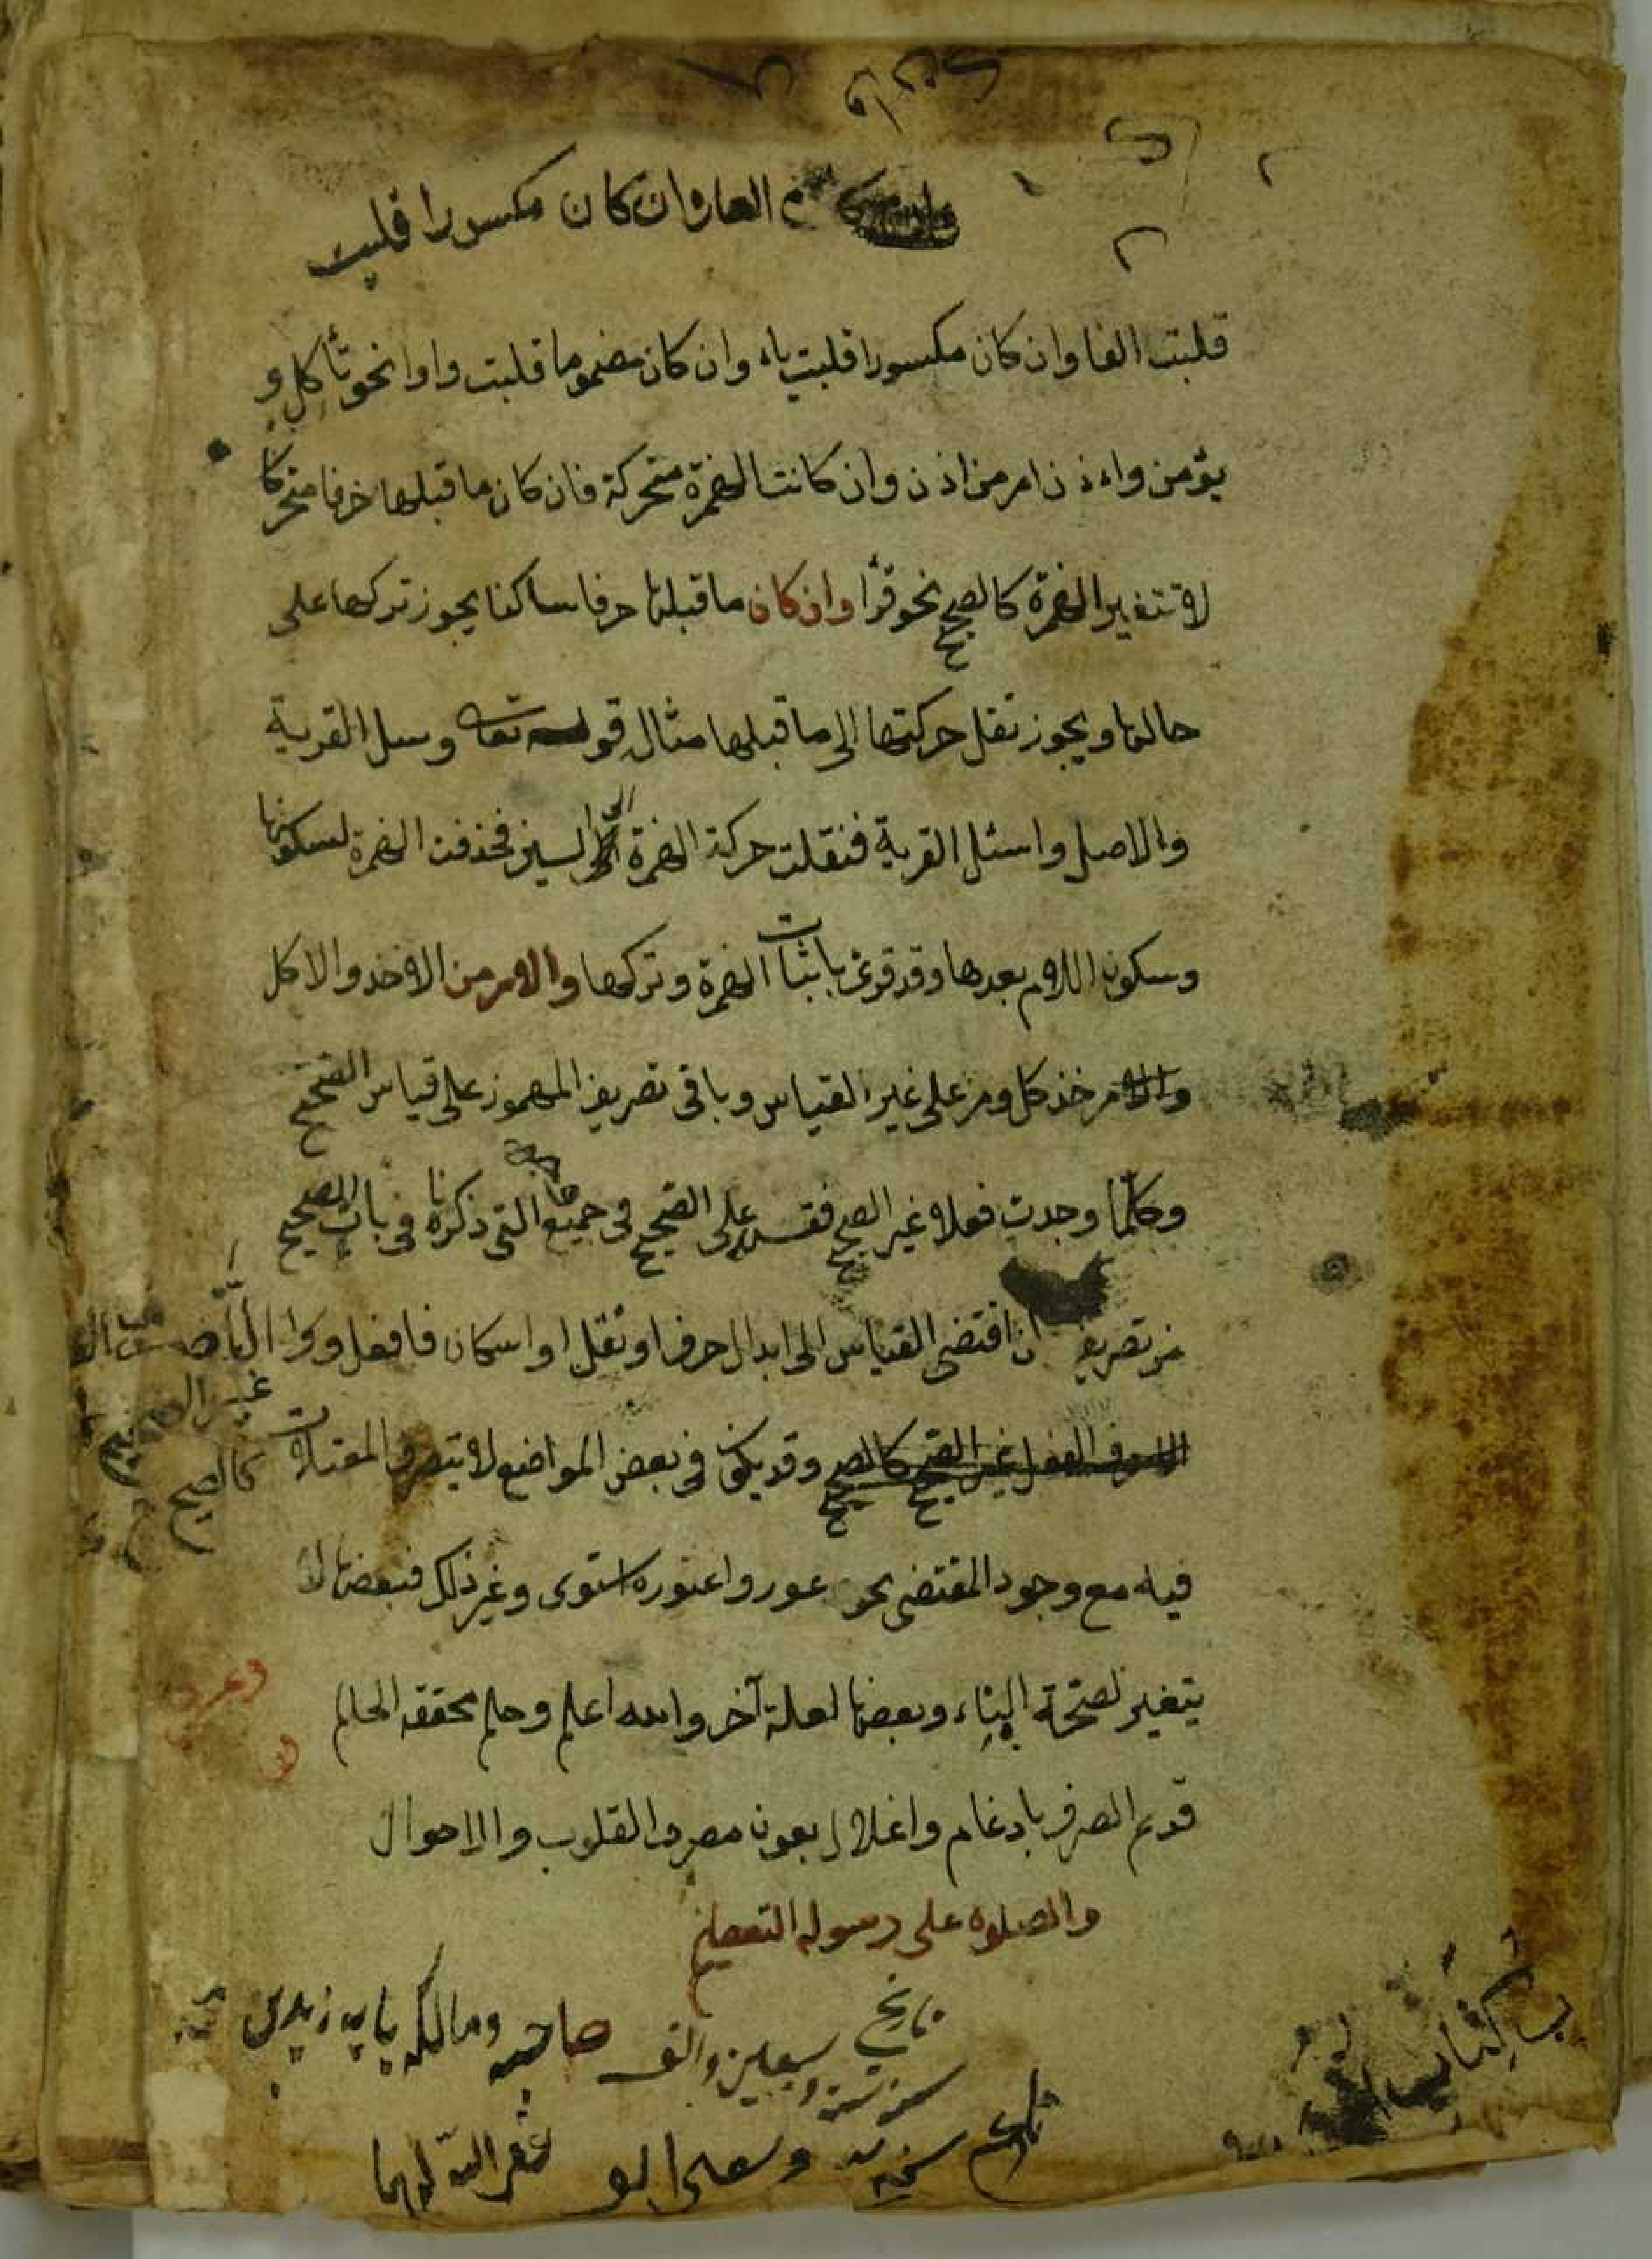 وان كان مكسورا قلبت
قلبت الفا وان كان مكسورا قلبت ياء وان كان مضموما قلبت واوا نحو تأكل و
يؤمن واءذن امر من اذن وان كانت الهمزة متحركة فان كان ما قبلها حرفا متحركا
لا تتغير الهمزة كالصحيح نحو قرأ وان كان ما قبلها حرفا ساكنا يجوز تركها على
حالها ويجوز نقل حركتها الى ما قبلها مثاله قوله تعالى وسل القرية
والاصل واسئل القرية فنقلت حركة الهمزة الى السين فحذفت الهمزة لسكونها
وسكون اللام بعدها وقد قرئ باثبات الهمزة وتركها والامر من الاخذ والاكل
والامر خذ كل ومر على غير القياس وباقى تصريف المهموز على قياس الصحيح
وكلما وجدت فعلا غير الصحيح فقسه على الصحيح فى جميع التى ذكرنا فى باب الصحيح
من تصريف ان اقتضى القياس الى ابدال حرف او نقل او اسكان فافعل والا
الفعل غير الصحيح كالصحيح وقد يكون فى بعض المواضع لا يتصرف المعتلات
غير الصحيح
كالصحيح
فيه مع وجود المقتضى نحو عور واعتور واستوى وغير ذلك فبعضها لا
يتغير لصحة البناء وبعضها لعلة آخر والله اعلم وحلم محققه الحلم
قد تم الصرف بادغام واعلال بعون مصرف القلوب والاحوال
والصلوة على رسوله
تاريخ
سنة سبعين والف
صاحبه ومالكه
غفر الله لهما